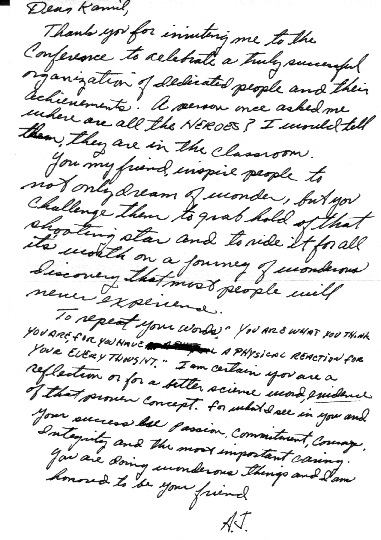 Dear Kamil,
Thank you for inviting me to the
Conference to celebrate a truly successful
organization of dedicated people and their
achievements. A person once asked me
where are all the HEROES? I would tell
them, they are in the classroom.
You my friend, inspire people to
not only dream of wonder, but you
challenge them to grab hold of that
shooting star and to ride it for all
its worth on a journey of wonderous
discovery that most people will
never experience.
To repeat your words, "YOU ARE WHAT YOU THINK
YOU ARE, FOR YOU HAVE A PHYSICAL REACTION FOR
YOUR EVERY THOUGHT." I am certain you are a
reflection or for a better science word, evidence
of that proven concept. For what I see in you and
your success are Passion, Commitment, Courage,
Integrity and the most important caring.
You are doing wonderous things and I am
honored to be your friend
A.J.